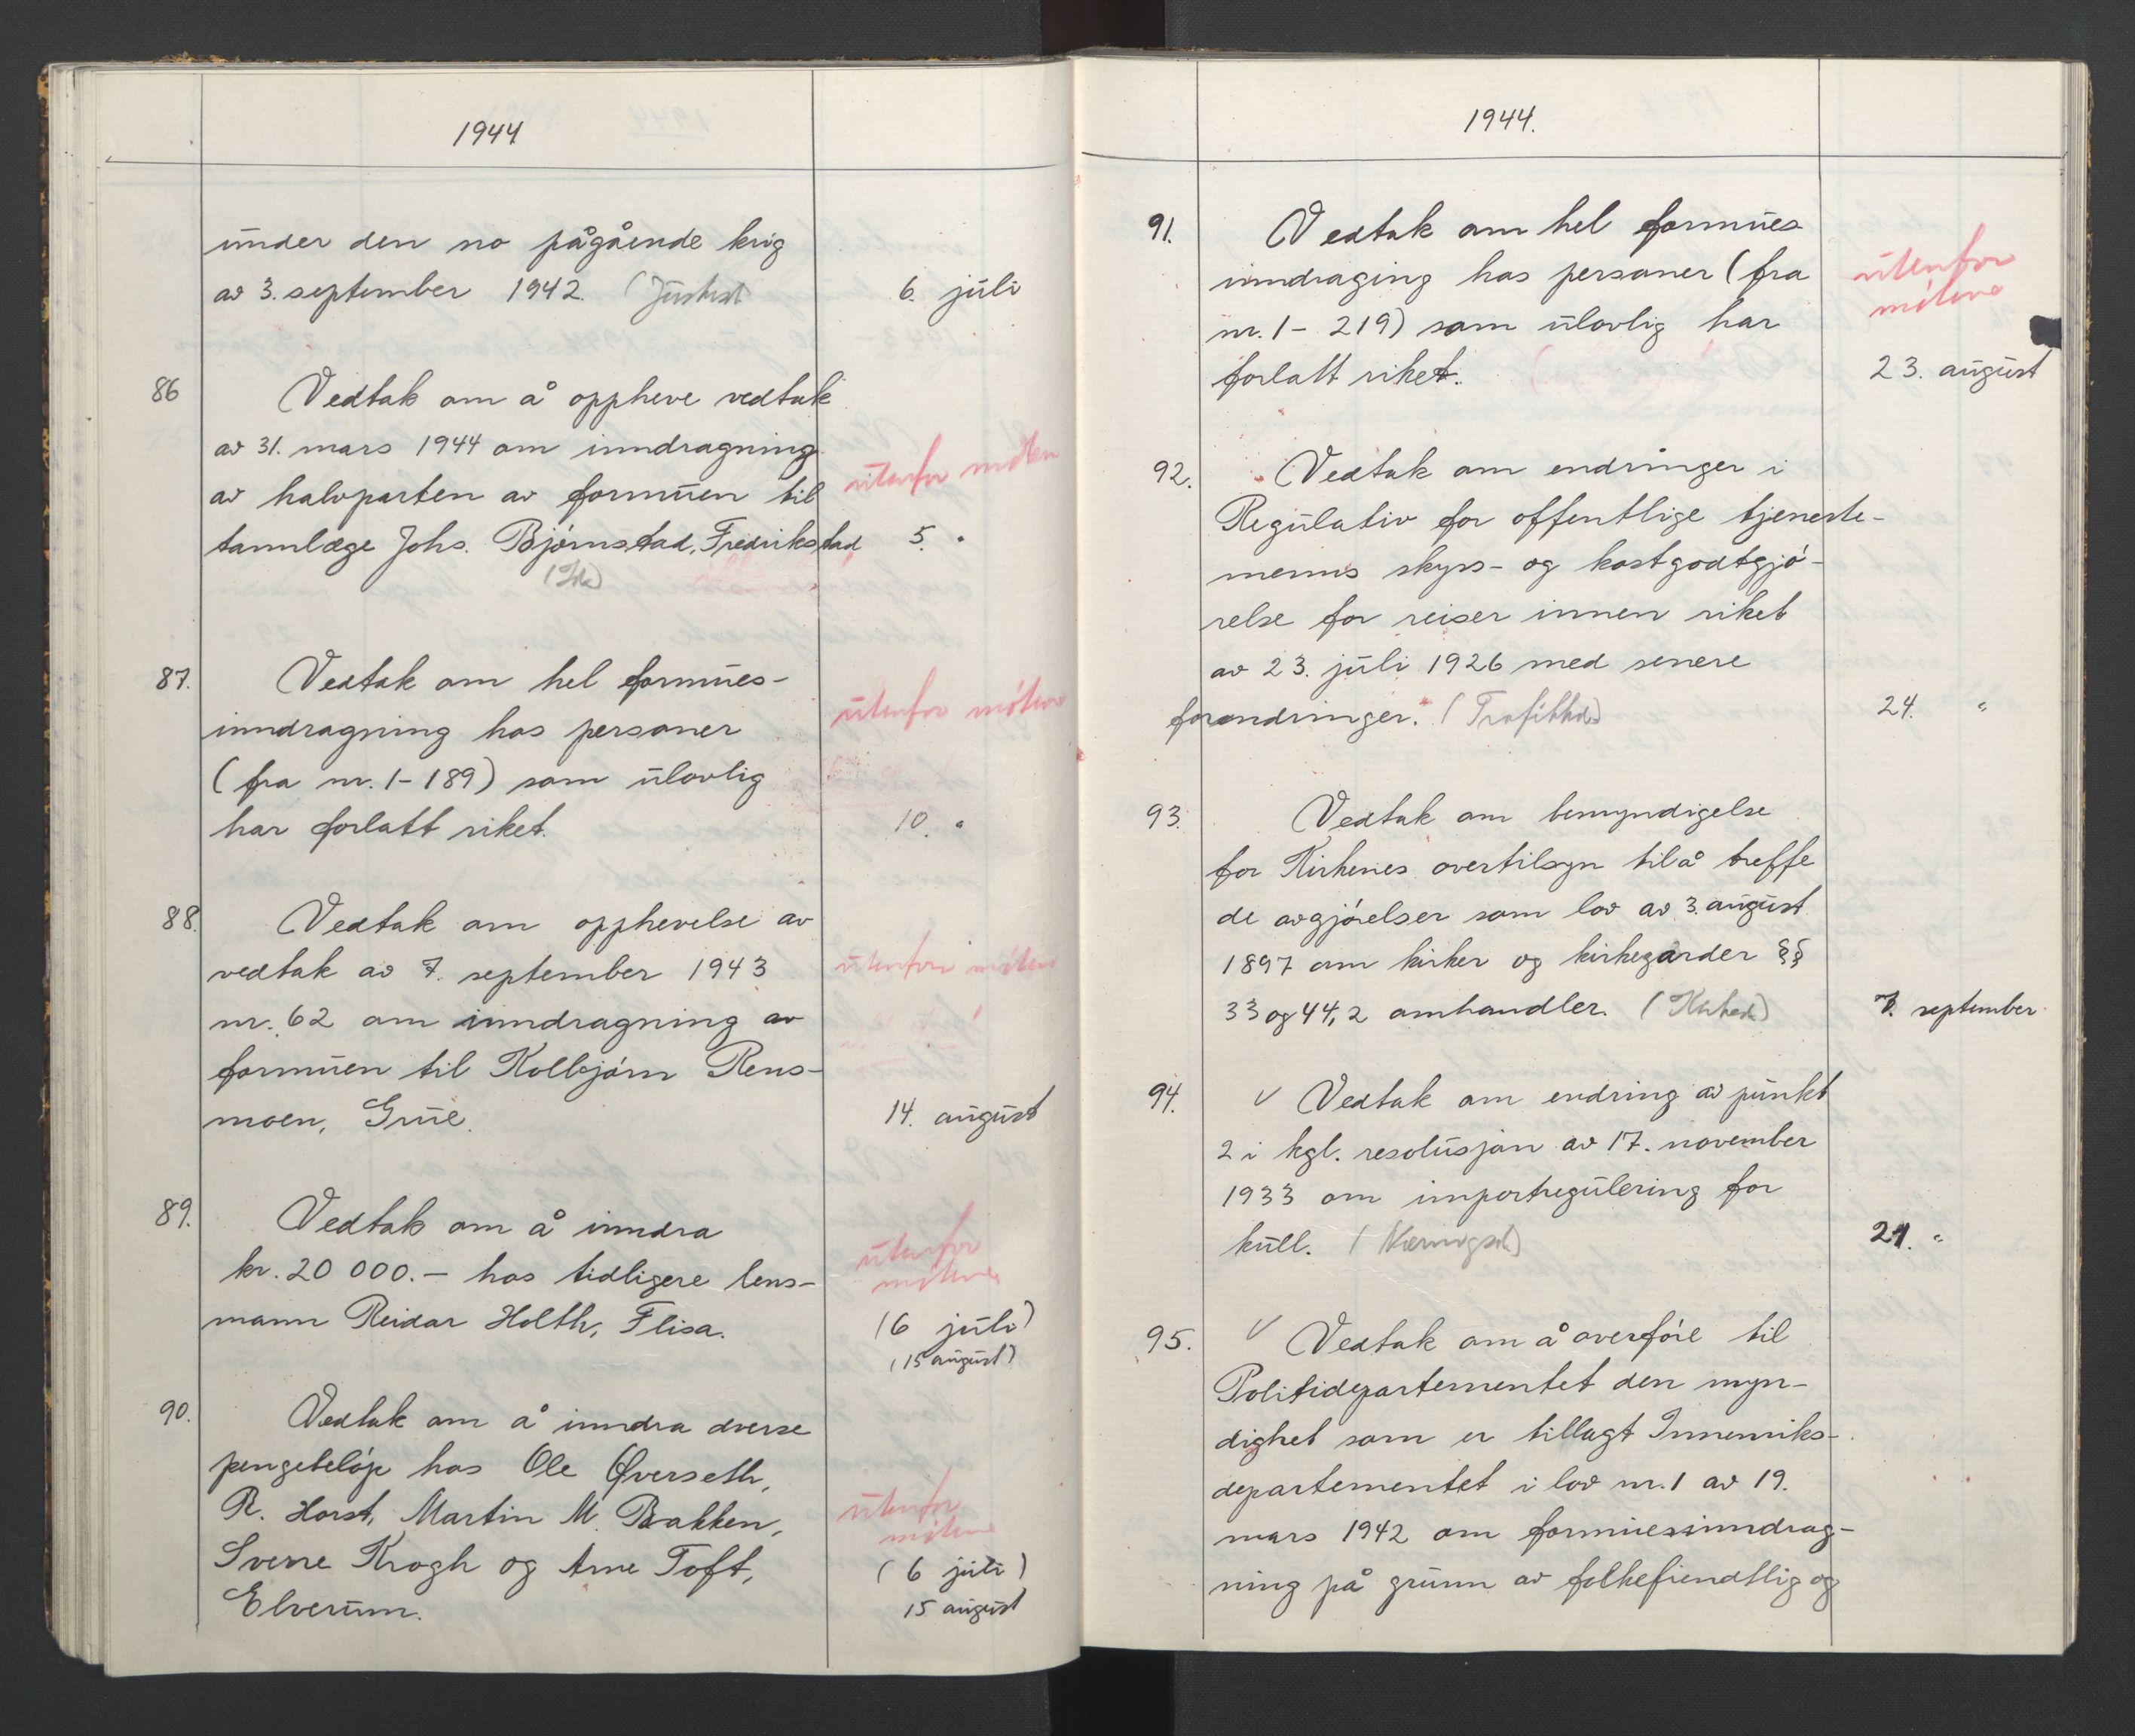 1944
under den no pågående krig
av 3. september 1942. (Justisd 6. juli
86 Vedtak om å oppheve vedtak
av 31. mars 1944 om inndragning
av halvparten av formuen til utenfor møtene
tannlæge Johs. Bjørnstad, Fredrikstad 5. "
87. Vedtak om hel formues-
inndragning hos personer utenfor møtene
(fra nr. 1-189) som ulovlig
har forlatt riket. 10. "
88. Vedtak om opphevelse av
vedtak av 7. september 1943 utenfor møtene
nr. 62 om inndragning av
formuen til Kolbjørn Rens-
moen, Grue. 14. august
89. Vedtak om å inndra
kr. 20 000.- hos tidligere lens- utenfor møtene
mann Reidar Holth, Flisa. (6 juli)
(15 august)
90. Vedtak om å inndra dverse
pengebeløp hos Ole Øverseth,
R. Horst, Martin M. Bakken, utenfor møtene
Sverre Krogh og Arne Toft, (6 juli)
Elverum. 15 august
1944.
91. Vedtak om hel formues
inndraging hos personer (fra utenfor møtene
nr. 1- 219) som ulovlig har
forlatt riket. 23. august
92. Vedtak om endringer i
Regulativ for offentlige tjeneste-
menns skyss- og kostgodtgjø-
relse for reiser innen riket
av 23. juli 1926 med senere
forandringer. (Trafikkd) 24. "
93. Vedtak om bemyndigelse
for Kirkenes overtilsyn til å treffe
de avgjørelser som lov av 3. august
1897 om kirker og kirkegårder §§
33 og 44, 2 omhandler. (Kirked) 7. september
94. V Vedtak om endring av punkt
2 i kgl. resolusjon av 17. november
1933 om importregulering for
kull. (Næringsd) 21. "
95. V Vedtak om å overføre til
Politidepartementet den myn-
dighet som er tillagt Innenriks-
departementet i lov nr. 1 av 19.
mars 1942 om formuesinndrag-
ning på grunn av folkefiendtlig og